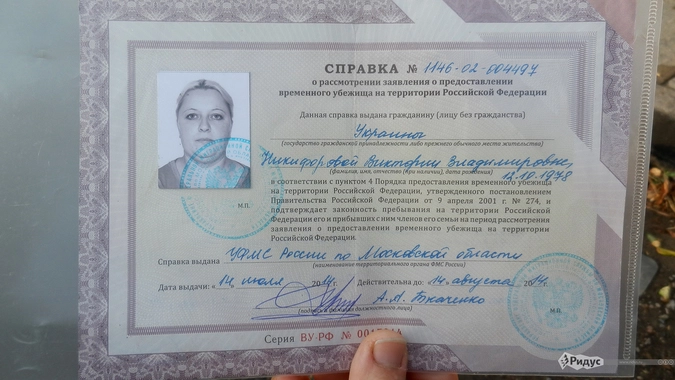 СПРАВКА № 1146-02-004497
о рассмотрении заявления о предоставлении
временного убежища на территории Российской Федерации
Данная справка выдана гражданину (лицу без гражданства)
Украины
(государство гражданской принадлежности либо прежнего обычного места жительства)
Никифоровой Виктории Владимировне,
(фамилия, имя, отчество (при наличии), дата рождения)
12.10.1978
в соответствии с пунктом 4 Порядка предоставления временного убежища
на территории Российской Федерации, утвержденного постановлением
Правительства Российской Федерации от 9 апреля 2001 г. № 274, и
подтверждает законность пребывания на территории Российской
Федерации его и прибывших с ним членов его семьи на период рассмотрения
заявления о предоставлении временного убежища на территории
Российской Федерации.
М.П.
Справка выдана УФМС России по Московской области
(наименование территориального органа ФМС России)
Дата выдачи: «14» июля 2014г. Действительна до «14» августа 2014г.
А.А. Ткаченко
(подпись и фамилия должностного лица)
М.П.
Серия ВУ РФ №
Ридус